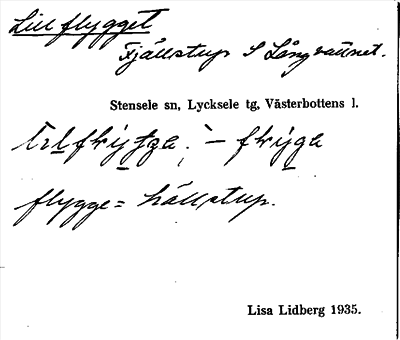 Lill flygget
Fjällstup S Långvattnet.
Stensele sn, Lycksele tg, Västerbottens l.
flygge = hällstup.
Lisa Lidberg 1935.